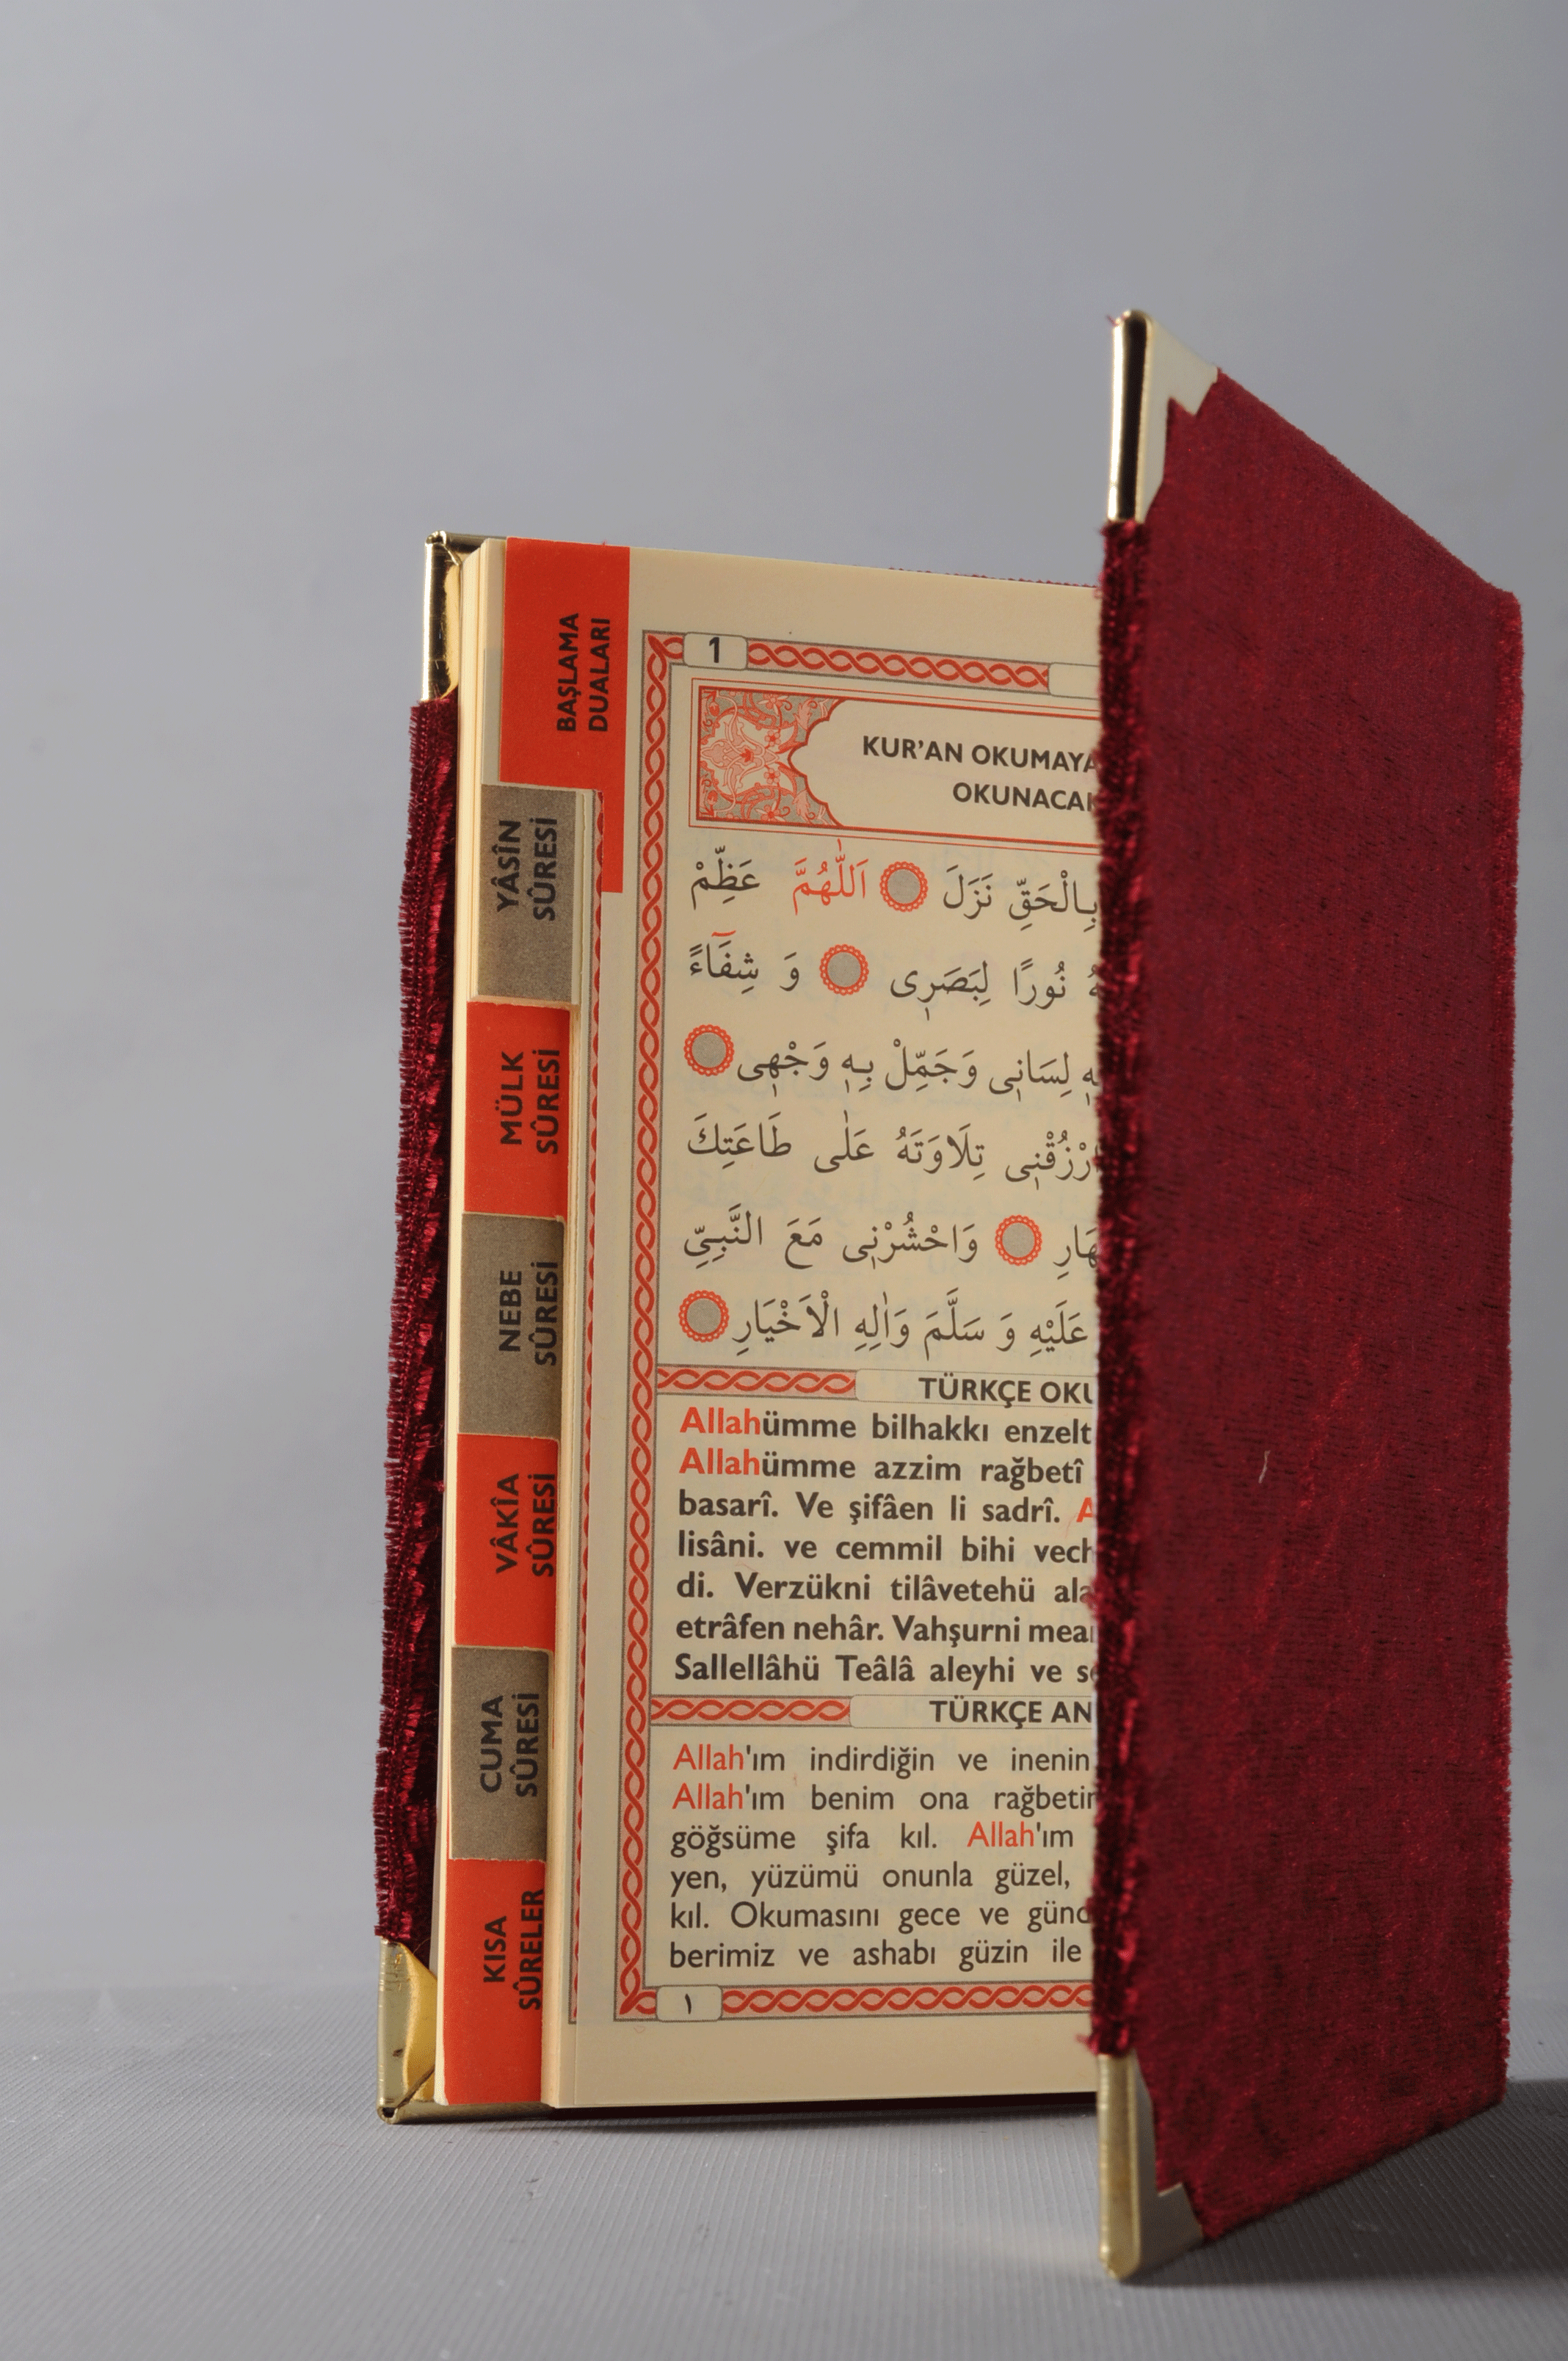 BAŞLAMA
DUALARI
YÂSÎN
SÛRESİ
MÜLK
SÛRESİ
NEBE
SÛRESİ
VÂKÎA
SÛRESİ
CUMA
SÛRESİ
KISA
SÛRELER
1
KUR'AN OKUMAYA
OKUNACAK
بِالْحَقِّ نَزَلَ اَللّٰهُمَّ عَظِّمْ
نُورًا لِبَصَرٖى وَ شِفَٓاءً
لِسَانٖى وَجَمِّلْ بِهٖ وَجْهٖى
تِلَاوَتَهُ عَلٰى طَاعَتِكَ
وَاحْشُرْنٖى مَعَ النَّبِىِّ
عَلَيْهِ وَ سَلَّمَ وَاٰلِهِ الْاَخْيَارِ
TÜRKÇE
Allahümme bilhakkı enzelt
Allahümme azzim rağbetî
basarî. Ve şifâen li sadrî.
lisâni. ve cemmil bihi vech
di. Verzükni tilâvetehü ala
etrâfen nehâr. Vahşurni mea
Sallellâhü Teâlâ aleyhi ve
TÜRKÇE
Allah'ım indirdiğin ve inenin
Allah'ım benim ona rağbetim
göğsüme şifa kıl. Allah'ım
yen, yüzümü onunla güzel,
kıl. Okumasını gece ve günd
berimiz ve ashabı güzin ile
١